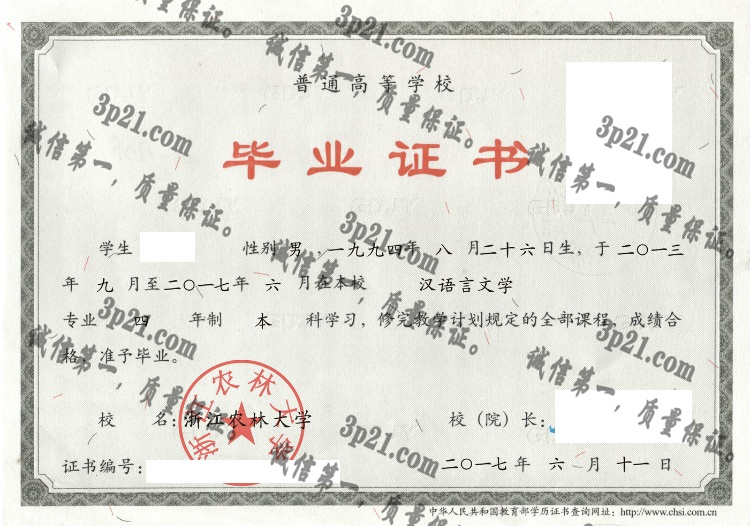 普通高等学校
毕业证书
学生 性别 男 ,一九九四年 八 月二十六日生，于二〇一三
年 九 月至二〇一七年 六 月在本校 汉语言文学
专业 四 年制 本 科学习，修完教学计划规定的全部课程，成绩合
格，准予毕业。
校 名：浙江农林大学 校（院）长：
证书编号： 二〇一七年 六 月 十一 日
中华人民共和国教育部学历证书查询网址：http://www.chsi.com.cn
浙江农林大学
3p21.com
诚信第一，质量保证。
3p21.com
诚信第一，质量保证。
3p21.com
诚信第一，质量保证。
3p21.com
诚信第一，质量保证。
3p21.com
诚信第一，质量保证。
3p21.com
诚信第一，质量保证。
3p21.com
诚信第一，质量保证。
3p21.com
诚信第一，质量保证。